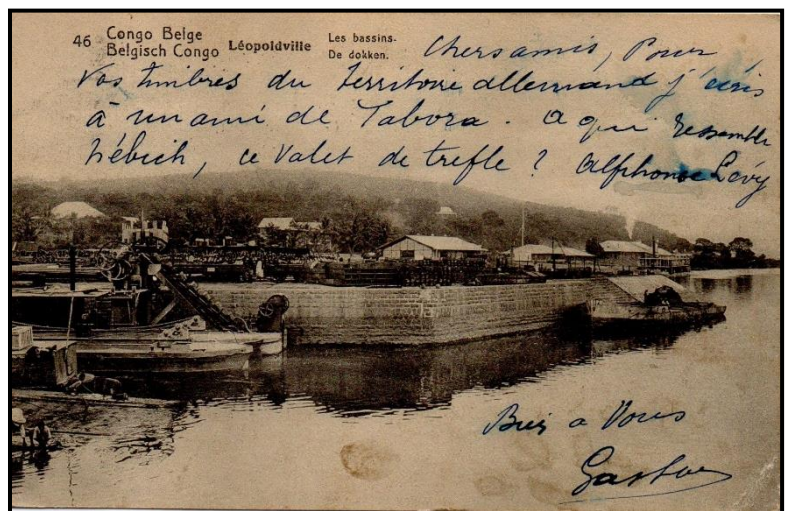 46 Congo Belge
Belgisch Congo
Léopoldville
Les bassins.
De dokken.
Chers amis, Pour
Vos timbres du territoire allemand j'écris
à un ami de Tabora. a qui ressemble
, ce Valet de trefle ? Alphonse Lévy
Bien a Vous
Gaston